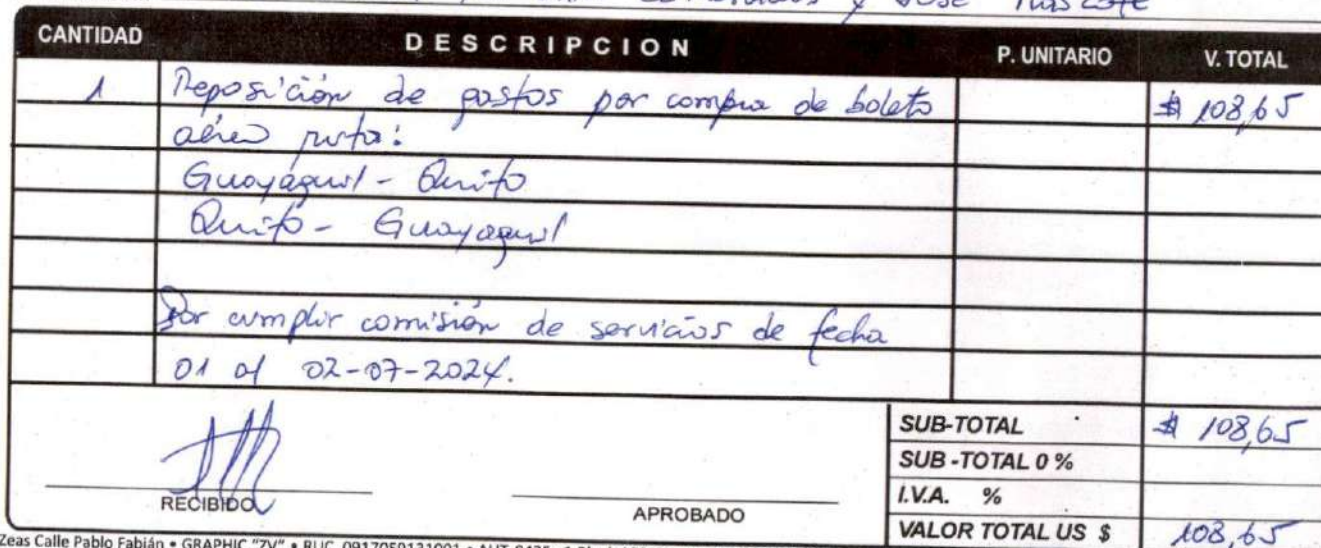 y José
CANTIDAD DESCRIPCION P. UNITARIO V. TOTAL
1 Reposición de gastos por compra de boleto $ 108,65
aéreo ruta:
Guayaquil - Quito
Quito - Guayaquil
Por cumplir comisión de servicios de fecha
01 al 02-07-2024.
SUB-TOTAL $ 108,65
SUB-TOTAL 0 %
I.V.A. %
RECIBIDO APROBADO
VALOR TOTAL US $ 108,65
Zeas Calle Pablo Fabián • GRAPHIC "ZV" • RUC.